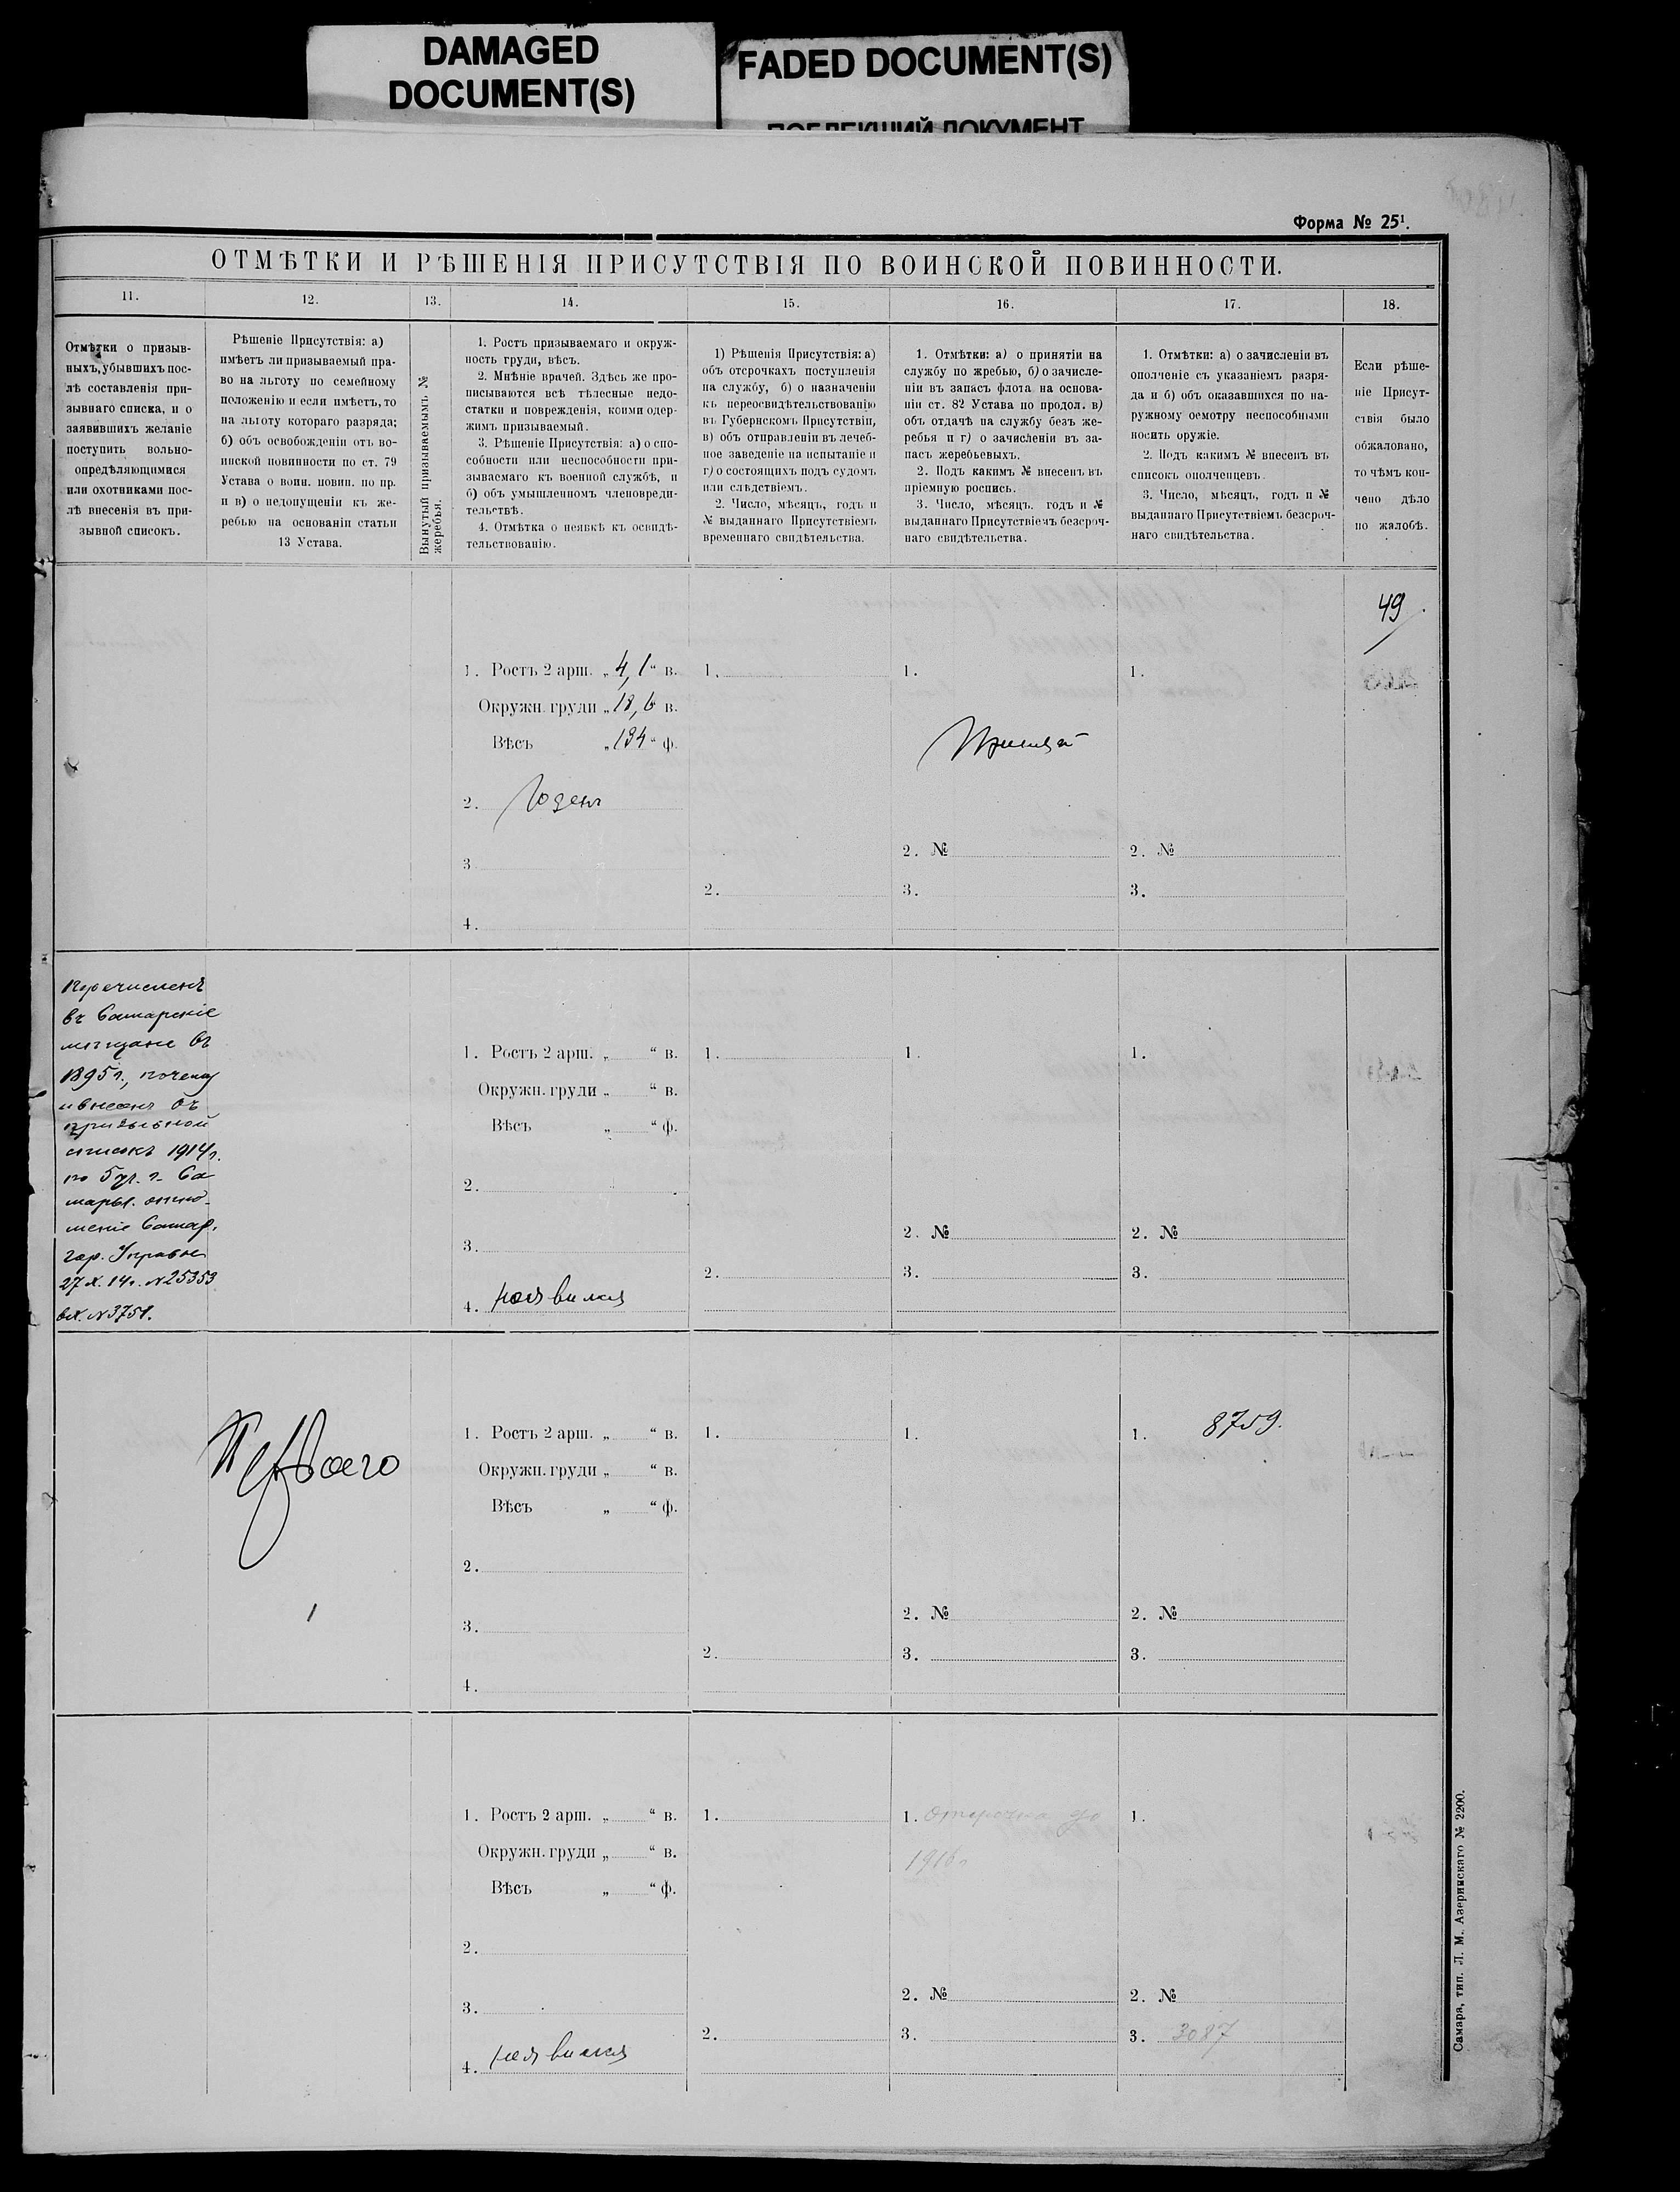 DAMAGED
DOCUMENT(S)
FADED DOCUMENT(S)
ПОБЛЕКШИЙ ДОКУМЕНТ
Форма № 25¹.
ОТМѢТКИ И РѢШЕНІЯ ПРИСУТСТВІЯ ПО ВОИНСКОЙ ПОВИННОСТИ.
11.
12.
13.
14.
15.
16.
17.
18.
Отмѣтки о призыв-
ныхъ, убывшихъ пос-
лѣ составленія при-
зывнаго списка, и о
заявившихъ желаніе
поступить вольно-
опредѣляющимися
или охотниками пос-
лѣ внесенія въ при-
зывной списокъ.
Рѣшеніе Присутствія: а)
имѣетъ ли призываемый пра-
во на льготу по семейному
положенію и если имѣетъ, то
на льготу котораго разряда;
б) объ освобожденіи отъ во-
инской повинности по ст. 79
Устава о воин. повин. по пр.
и в) о недопущеніи къ же-
ребью на основаніи статьи
13 Устава.
Вынутый призываемымъ №
жеребья.
1. Ростъ призываемаго и окруж-
ность груди, вѣсъ.
2. Мнѣніе врачей. Здѣсь же про-
писываются всѣ тѣлесные недо-
статки и поврежденія, коими одер-
жимъ призываемый.
3. Рѣшеніе Присутствія: а) о спо-
собности или неспособности при-
зываемаго къ военной службѣ, и
б) объ умышленномъ членовреди-
тельствѣ.
4. Отмѣтка о неявкѣ къ освидѣ-
тельствованію.
1) Рѣшенія Присутствія: а)
объ отсрочкахъ поступленія
на службу, б) о назначеніи
къ переосвидѣтельствованію
въ Губернскомъ Присутствіи,
в) объ отправленіи въ лечеб-
ное заведеніе на испытаніе и
г) о состоящихъ подъ судомъ
или слѣдствіемъ.
2. Число, мѣсяцъ, годъ и
№ выданнаго Присутствіемъ
временнаго свидѣтельства.
1. Отмѣтки: а) о принятіи на
службу по жребью, б) о зачисле-
ніи въ запасъ флота на основа-
ніи ст. 82 Устава по продол. в)
объ отдачѣ на службу безъ же-
ребья и г) о зачисленіи въ за-
пасъ жеребьевыхъ.
2. Подъ какимъ № внесенъ въ
пріемную роспись.
3. Число, мѣсяцъ. годъ и №
выданнаго Присутствіемъ безсроч-
наго свидѣтельства.
1. Отмѣтки: а) о зачисленіи въ
ополченіе съ указаніемъ разря-
да и б) объ оказавшихся по на-
ружному осмотру неспособными
носить оружіе.
2. Подъ какимъ № внесенъ въ
списокъ ополченцевъ.
3. Число, мѣсяцъ, годъ и №
выданнаго Присутствіемъ безсроч-
наго свидѣтельства.
Если рѣше-
ніе Присут-
ствія было
обжаловано,
то чѣмъ кон-
чено дѣло
по жалобѣ.
49
1. Ростъ 2 арш. „ 4,1 “ в.
Окружн. груди „ 18,6 в.
Вѣсъ „ 134 “ ф.
2. Годенъ
3
4.
1.
2.
1.
Принятъ
2. №
3.
1.
2. №
3.
Перечисленъ
въ Самарскіе
мѣщане въ
1895 г., почему
и внесенъ въ
призывной
списокъ 1914 г.
по 5 уч. г. Са
мары. отно-
шеніе Самар.
гор. Управы
27 X. 14 г. № 25353
вх. № 3751.
1. Ростъ 2 арш. „ “ в.
Окружн. груди „ “ в.
Вѣсъ „ “ ф.
2.
3.
4. неявился
1.
2.
1.
2. №
3.
1.
2. №
3.
Перваго
1
1. Ростъ 2 арш. „ “ в.
Окружн. груди „ “ в.
Вѣсъ „ “ ф.
2.
3.
4.
1.
2.
1.
2. №
3.
1. 8759.
2. №
3.
1. Ростъ 2 арш. „ “ в.
Окружн. груди „ “ в.
Вѣсъ „ “ ф.
2.
3.
4. неявился
1.
2.
1. Отсрочка до
1916 г
2. №
3.
1.
2. №
3. 3087
Самара, тип. Л. М. Азеринскаго № 2200.